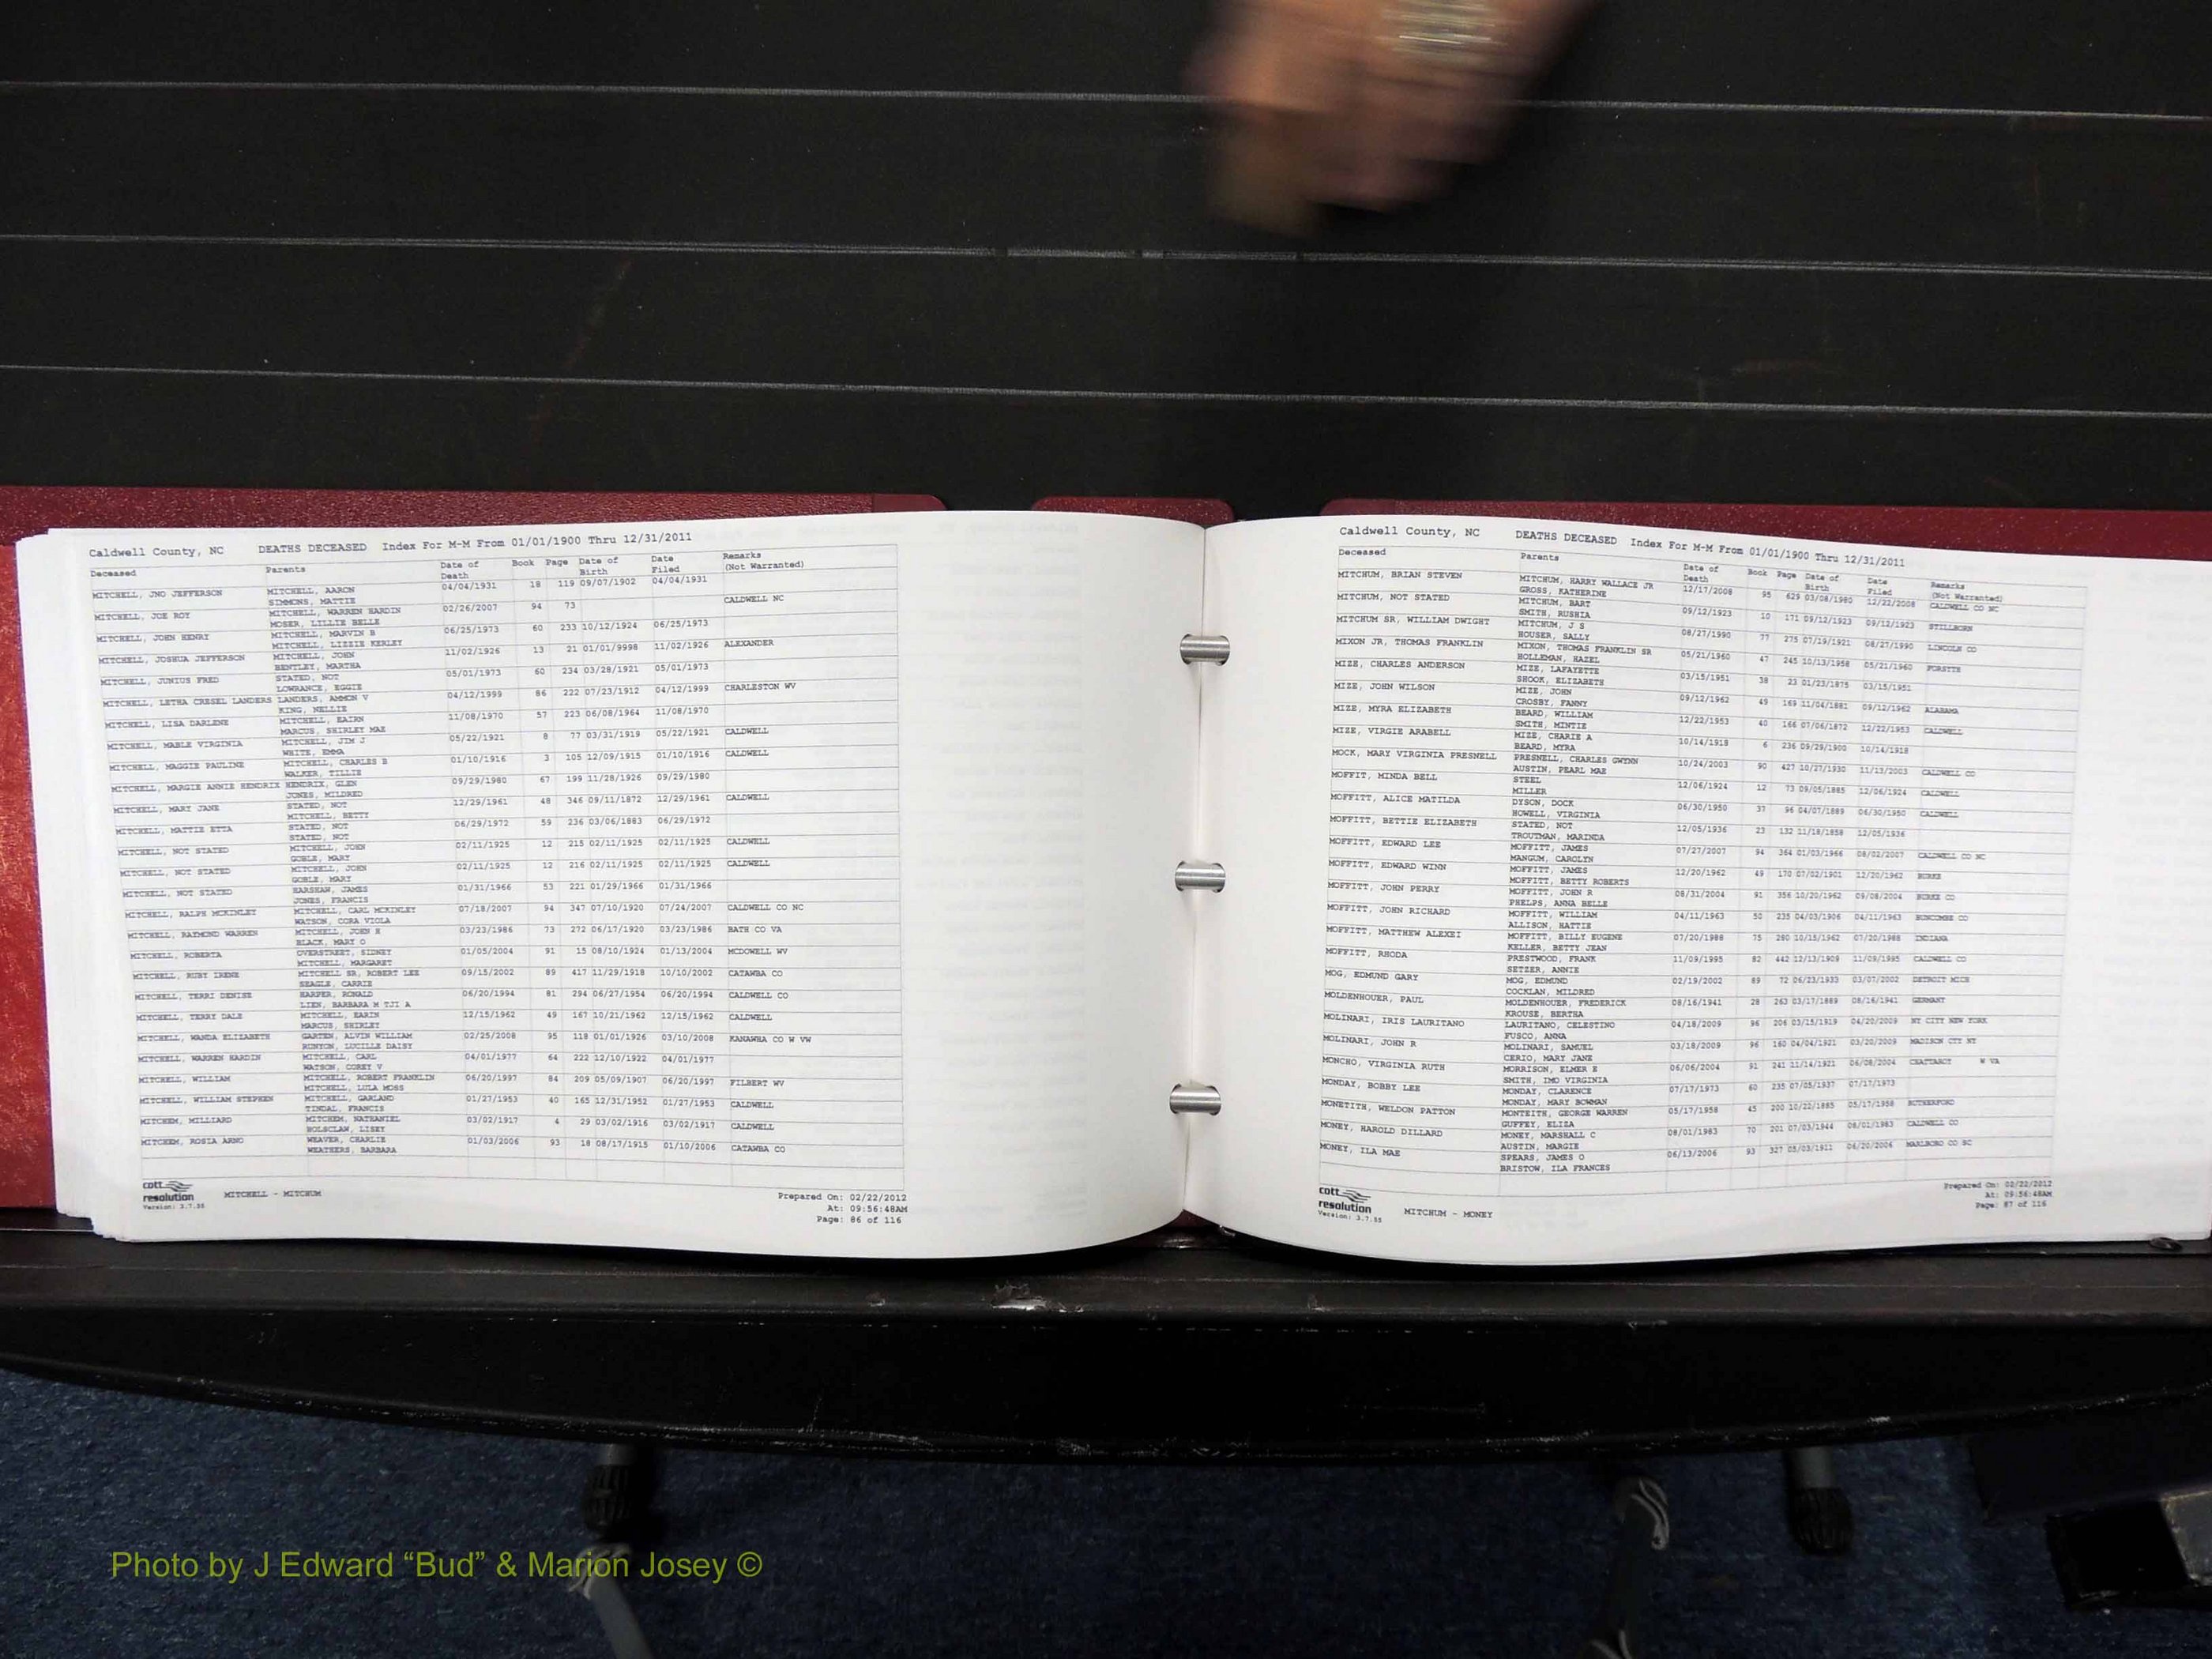 Caldwell County, NC DEATHS DECEASED Index For M-M From 01/01/1900 Thru 12/31/2011
Deceased Parents Date of Death Book Page Date of Birth Date Filed Remarks (Not Warranted)
MITCHELL, JNO JEFFERSON MITCHELL, AARON 04/04/1931 18 119 09/07/1902 04/04/1931
SIMMONS, MATTIE
MITCHELL, JOE ROY MITCHELL, WARREN HARDIN 02/26/2007 94 73 CALDWELL NC
MOSER, LILLIE BELLE
MITCHELL, JOHN HENRY MITCHELL, MARVIN B 06/25/1973 60 233 10/12/1924 06/25/1973
MITCHELL, LIZZIE KERLEY
MITCHELL, JOSHUA JEFFERSON MITCHELL, JOHN 11/02/1926 13 21 01/01/9998 11/02/1926 ALEXANDER
BENTLEY, MARTHA
MITCHELL, JUNIUS FRED STATED, NOT 05/01/1973 60 234 03/28/1921 05/01/1973
LOWRANCE, EGGIE
MITCHELL, LETHA CRESEL LANDERS LANDERS, AMMON V 04/12/1999 86 222 07/23/1912 04/12/1999 CHARLESTON WV
KING, NELLIE
MITCHELL, LISA DARLENE MITCHELL, EAIRN 11/08/1970 57 223 06/08/1964 11/08/1970
MARCUS, SHIRLEY MAE
MITCHELL, MABLE VIRGINIA MITCHELL, JIM J 05/22/1921 8 77 03/31/1919 05/22/1921 CALDWELL
WHITE, EMMA
MITCHELL, MAGGIE PAULINE MITCHELL, CHARLES B 01/10/1916 3 105 12/09/1915 01/10/1916 CALDWELL
WALKER, TILLIE
MITCHELL, MARGIE ANNIE HENDRIX HENDRIX, GLEN 09/29/1980 67 199 11/28/1926 09/29/1980
JONES, MILDRED
MITCHELL, MARY JANE STATED, NOT 12/29/1961 48 346 09/11/1872 12/29/1961 CALDWELL
MITCHELL, BETTY
MITCHELL, MATTIE ETTA STATED, NOT 06/29/1972 59 236 03/06/1883 06/29/1972
STATED, NOT
MITCHELL, NOT STATED MITCHELL, JOHN 02/11/1925 12 215 02/11/1925 02/11/1925 CALDWELL
GOBLE, MARY
MITCHELL, NOT STATED MITCHELL, JOHN 02/11/1925 12 216 02/11/1925 02/11/1925 CALDWELL
GOBLE, MARY
MITCHELL, NOT STATED HARSHAW, JAMES 01/31/1966 53 221 01/29/1966 01/31/1966
JONES, FRANCIS
MITCHELL, RALPH MCKINLEY MITCHELL, CARL MCKINLEY 07/18/2007 94 347 07/10/1920 07/24/2007 CALDWELL CO NC
WATSON, CORA VIOLA
MITCHELL, RAYMOND WARREN MITCHELL, JOHN H 03/23/1986 73 272 06/17/1920 03/23/1986 BATH CO VA
BLACK, MARY O
MITCHELL, ROBERTA OVERSTREET, SIDNEY 01/05/2004 91 15 08/10/1924 01/13/2004 MCDOWELL WV
MITCHELL, MARGARET
MITCHELL, RUBY IRENE MITCHELL SR, ROBERT LEE 09/15/2002 89 417 11/29/1918 10/10/2002 CATAWBA CO
SEAGLE, CARRIE
MITCHELL, TERRI DENISE HARPER, RONALD 06/20/1994 81 294 06/27/1954 06/20/1994 CALDWELL CO
LIEN, BARBARA M TJI A
MITCHELL, TERRY DALE MITCHELL, EARIN 12/15/1962 49 167 10/21/1962 12/15/1962 CALDWELL
MARCUS, SHIRLEY
MITCHELL, WANDA ELIZABETH GARTEN, ALVIN WILLIAM 02/25/2008 95 118 01/01/1926 03/10/2008 KANAWHA CO W VW
RUNYON, LUCILLE DAISY
MITCHELL, WARREN HARDIN MITCHELL, CARL 04/01/1977 64 222 12/10/1922 04/01/1977
WATSON, COREY V
MITCHELL, WILLIAM MITCHELL, ROBERT FRANKLIN 06/20/1997 84 209 05/09/1907 06/20/1997 FILBERT WV
MITCHELL, LULA MOSS
MITCHELL, WILLIAM STEPHEN MITCHELL, GARLAND 01/27/1953 40 165 12/31/1952 01/27/1953 CALDWELL
TINDAL, FRANCIS
MITCHEM, MILLIARD MITCHEM, NATHANIEL 03/02/1917 4 29 03/02/1916 03/02/1917 CALDWELL
HOLSCLAW, LISEY
MITCHEM, ROSIA ARNO WEAVER, CHARLIE 01/03/2006 93 18 08/17/1915 01/10/2006 CATAWBA CO
WEATHERS, BARBARA
cott
resolution
Version: 3.7.55
MITCHELL - MITCHUM
Prepared On: 02/22/2012
At: 09:56:48AM
Page: 86 of 116
Caldwell County, NC DEATHS DECEASED Index For M-M From 01/01/1900 Thru 12/31/2011
Deceased Parents Date of Death Book Page Date of Birth Date Filed Remarks (Not Warranted)
MITCHUM, BRIAN STEVEN MITCHUM, HARRY WALLACE JR 12/17/2008 95 629 03/08/1980 12/22/2008 CALDWELL CO NC
GROSS, KATHERINE
MITCHUM, NOT STATED MITCHUM, BART 09/12/1923 10 171 09/12/1923 09/12/1923 STILLBORN
SMITH, RUSHIA
MITCHUM SR, WILLIAM DWIGHT MITCHUM, J S 08/27/1990 77 275 07/19/1921 08/27/1990 LINCOLN CO
HOUSER, SALLY
MIXON JR, THOMAS FRANKLIN MIXON, THOMAS FRANKLIN SR 05/21/1960 47 245 10/13/1958 05/21/1960 FORSYTE
HOLLEMAN, HAZEL
MIZE, CHARLES ANDERSON MIZE, LAFAYETTE 03/15/1951 38 23 01/23/1875 03/15/1951
SHOOK, ELIZABETH
MIZE, JOHN WILSON MIZE, JOHN 09/12/1962 49 169 11/04/1881 09/12/1962 ALABAMA
CROSBY, FANNY
MIZE, MYRA ELIZABETH BEARD, WILLIAM 12/22/1953 40 166 07/06/1872 12/22/1953 CALDWELL
SMITH, MINTIE
MIZE, VIRGIE ARABELL MIZE, CHARIE A 10/14/1918 6 236 09/29/1900 10/14/1918
BEARD, MYRA
MOCK, MARY VIRGINIA PRESNELL PRESNELL, CHARLES GWYNN 10/24/2003 90 427 10/27/1930 11/13/2003 CALDWELL CO
AUSTIN, PEARL MAE
MOFFIT, MINDA BELL STEEL 12/06/1924 12 73 09/05/1885 12/06/1924 CALDWELL
MILLER
MOFFITT, ALICE MATILDA DYSON, DOCK 06/30/1950 37 96 04/07/1889 06/30/1950 CALDWELL
HOWELL, VIRGINIA
MOFFITT, BETTIE ELIZABETH STATED, NOT 12/05/1936 23 132 11/18/1858 12/05/1936
TROUTMAN, MARINDA
MOFFITT, EDWARD LEE MOFFITT, JAMES 07/27/2007 94 364 01/03/1966 08/02/2007 CALDWELL CO NC
MANGUM, CAROLYN
MOFFITT, EDWARD WINN MOFFITT, JAMES 12/20/1962 49 170 07/02/1901 12/20/1962 BURKE
MOFFITT, BETTY ROBERTS
MOFFITT, JOHN PERRY MOFFITT, JOHN R 08/31/2004 91 356 10/20/1962 09/08/2004 BURKE CO
PHELPS, ANNA BELLE
MOFFITT, JOHN RICHARD MOFFITT, WILLIAM 04/11/1963 50 235 04/03/1906 04/11/1963 BUNCOMBE CO
ALLISON, HATTIE
MOFFITT, MATTHEW ALEXEI MOFFITT, BILLY EUGENE 07/20/1988 75 280 10/15/1962 07/20/1988 INDIANA
KELLER, BETTY JEAN
MOFFITT, RHODA PRESTWOOD, FRANK 11/09/1995 82 442 12/13/1909 11/09/1995 CALDWELL CO
SETZER, ANNIE
MOG, EDMUND GARY MOG, EDMUND 02/19/2002 89 72 06/23/1933 03/07/2002 DETROIT MICH
COCKLAN, MILDRED
MOLDENHOUER, PAUL MOLDENHOUER, FREDERICK 08/16/1941 28 263 03/17/1889 08/16/1941 GERMANY
KROUSE, BERTHA
MOLINARI, IRIS LAURITANO LAURITANO, CELESTINO 04/18/2009 96 206 03/15/1919 04/20/2009 NY CITY NEW YORK
FUSCO, ANNA
MOLINARI, JOHN R MOLINARI, SAMUEL 03/18/2009 96 160 04/04/1921 03/20/2009 MADISON CTY NY
CERIO, MARY JANE
MONCHO, VIRGINIA RUTH MORRISON, ELMER E 06/06/2004 91 241 11/14/1921 06/08/2004 CHATTAROY W VA
SMITH, IMO VIRGINIA
MONDAY, BOBBY LEE MONDAY, CLARENCE 07/17/1973 60 235 07/05/1937 07/17/1973
MONDAY, MARY BOWMAN
MONETITH, WELDON PATTON MONTEITH, GEORGE WARREN 05/17/1958 45 200 10/22/1885 05/17/1958 RUTHERFORD
GUFFEY, ELIZA
MONEY, HAROLD DILLARD MONEY, MARSHALL C 08/01/1983 70 201 07/03/1944 08/01/1983 CALDWELL CO
AUSTIN, MARGIE
MONEY, ILA MAE SPEARS, JAMES O 06/13/2006 93 327 05/03/1911 06/20/2006 MARLBORO CO SC
BRISTOW, ILA FRANCES
cott
resolution
Version: 3.7.55
MITCHUM - MONEY
Prepared On: 02/22/2012
At: 09:56:48AM
Page: 87 of 116
Photo by J Edward “Bud” & Marion Josey ©